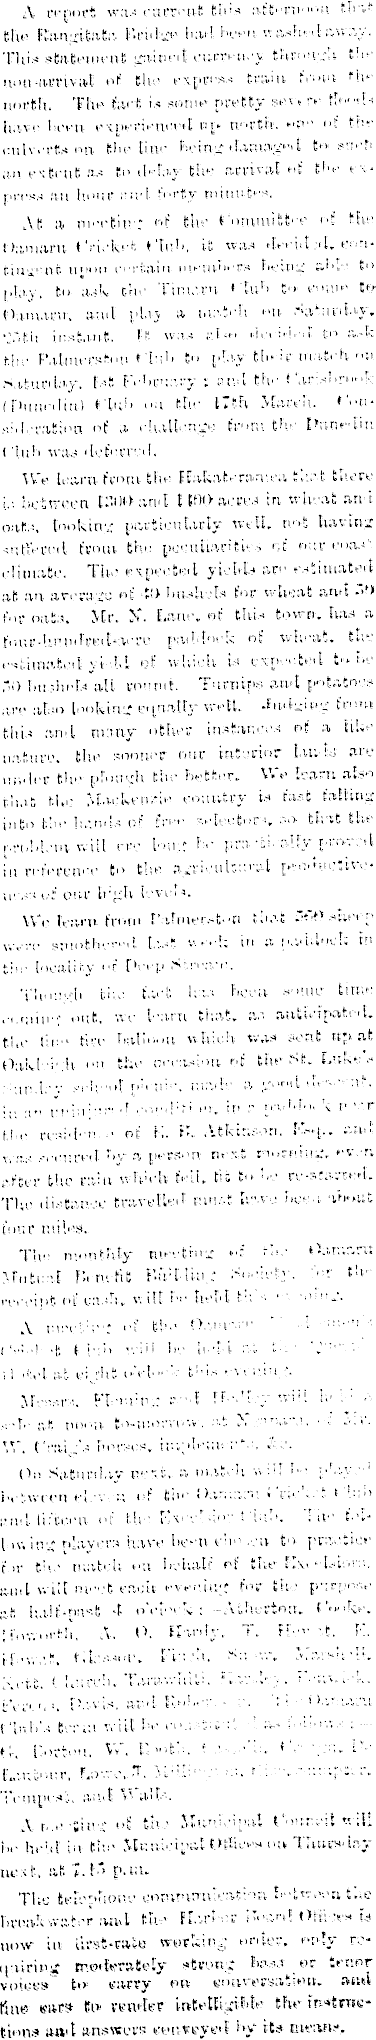 A report was current this afternoon that
the Rangitata Bridge had been washed away.
This statement gained currency through the
non-arrival of the express train from the
north. The fact is some pretty severe floods
have been experienced up north, one of the
culverts on the line being damaged to such
an extent as to delay the arrival of the ex-
press an hour and forty minutes.
At a meeting of the Committee of the
Oamaru Cricket Club, it was decided, con-
tingent upon certain members being able to
play, to ask the Timaru Club to come to
Oamaru, and play a match on Saturday,
25th instant. It was also decided to ask
the Palmerston Club to play their match on
Saturday, 1st February; and the Carisbrook
(Dunedin) Club on the 17th March. Con-
sideration of a challenge from the Dunedin
Club was deferred.
We learn from the Hakateramea that there
is between 1300 and 1400 acres in wheat and
oats, looking particularly well, not having
suffered from the peculiarities of our coast
climate. The expected yields are estimated
at an average of 40 bushels for wheat and 50
for oats. Mr. N. Lane, of this town, has a
four-hundred-acre paddock of wheat, the
estimated yield of which is expected to be
50 bushels all round. Turnips and potatoes
are also looking equally well. Judging from
this and many other instances of a like
nature, the sooner our interior lands are
under the plough the better. We learn also
that the Mackenzie country is fast falling
into the hands of free selectors, so that the
problem will ere long be practically proved
in reference to the agricultural productive-
ness of our high levels.
We learn from Palmerston that 560 sheep
were smothered last week in a paddock in
the locality of Deep Stream.
Though the fact has been some time
coming out, we learn that, as anticipated,
the fine fire balloon which was sent up at
Oakleigh on the occasion of the St. Luke's
Sunday school picnic, made a good descent,
in an uninjured condition, in a paddock near
the residence of E. B. Atkinson, Esq., and
was secured by a person next morning, even
after the rain which fell, fit to be re-started.
The distance travelled must have been about
four miles.
The monthly meeting of the Oamaru
Mutual Benefit Building Society, for the
receipt of cash, will be held this evening.
A meeting of the Oamaru
Cricket Club will be held at the Queen's
Hotel at eight o'clock this evening.
Messrs. Fleming and Hedley will hold a
sale at noon to-morrow, at of Mr.
W. Craig's horses, implements, &c.
On Saturday next, a match will be played
between eleven of the Oamaru Cricket Club
and fifteen of the Excelsior Club. The fol-
lowing players have been chosen to practice
for the match on behalf of the Excelsiors,
and will meet each evening for the purpose
at half-past 4 o'clock:—Atherton, Cooke,
Howorth, A. O. Hardy, T. Howat, E.
Howat, Gleeson, Finch, Snow, Marshall,
Kett, Church, Tarawhiti, Hardey, Fenwick,
Davis, and The Oamaru
Club's team will be constituted as follows:—
G. Borton, W. Booth, De
Lautour, Lowe, J. Sumpter,
Tempest, and Walls.
A meeting of the Municipal Council will
be held in the Municipal Offices on Thursday
next, at 7.45 p.m.
The telephone communication between the
breakwater and the Harbor Board Offices is
now in first-rate working order, only re-
quiring moderately strong bass or tenor
voices to carry on conversation, and
fine ears to render intelligible the instruc-
tions and answers conveyed by its means.